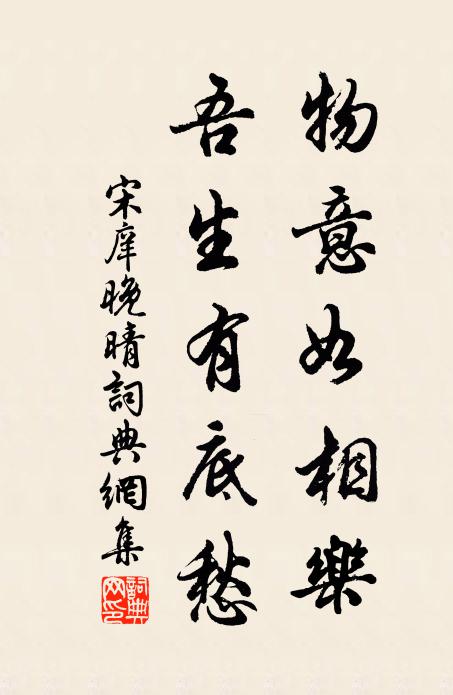 物意如相樂
吾生有底愁
宋庠晚晴詞典網集
詞典網印